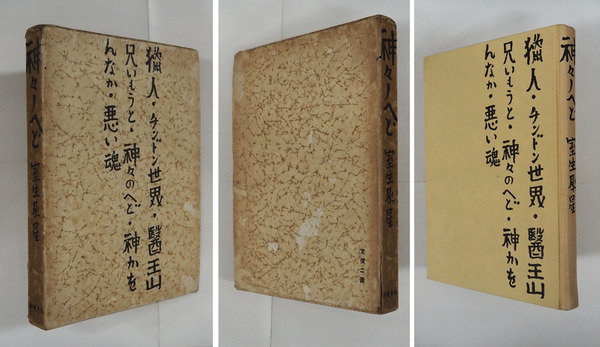 獵人・チンドン世界・醫王山
兄いもうと・神々のへど・神かを
んなか・悪い魂
神々のへど 室生犀星
神々のへど 室生犀星
神々のへど 室生犀星
獵人・チンドン世界・醫王山
兄いもうと・神々のへど・神かを
んなか・悪い魂